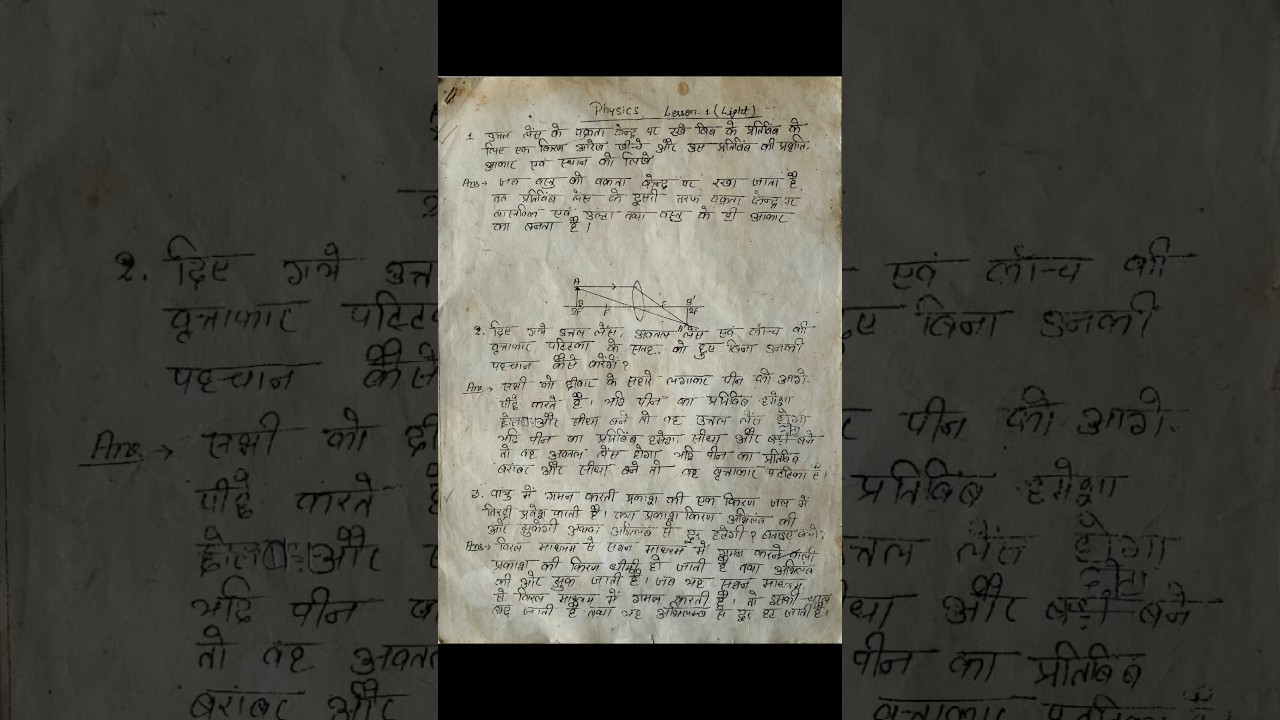 Physics Lesson-1 (Light)
1. उत्तल लेंस के वक्रता केन्द्र पर रखे बिंब के प्रतिबिंब के
लिए एक किरण आरेख खींचे और उस प्रतिबिंब की प्रकृति,
आकार एवं स्थान को लिखें
Ans → जब वस्तु को वक्रता केन्द्र पर रखा जाता है,
तब प्रतिबिंब लेंस के दूसरी तरफ वक्रता केन्द्र पर
वास्तविक एवं उल्टा तथा वस्तु के ही आकार
का बनता है।
A
B B'
2F F F 2F
A'
2. दिए गये उत्तल लेंस, अवतल लेंस एवं लॉन्च की
वृत्ताकार पट्टिका के सतह को छुए बिना उनकी
पहचान कैसे करेंगे?
Ans → सभी को दीवार के सहारे लगाकर पीन को आगे-
पीछे करते है। यदि पीन का प्रतिबिंब हमेशा
और सीधा बने तो वह उत्तल लेंस होगा
यदि पीन का प्रतिबिंब हमेशा सीधा और बड़ा बने
तो वह अवतल लेंस होगा यदि पीन का प्रतिबिंब
बराबर और सीधा बने तो वह वृत्ताकार पट्टिका है।
3. वायु में गमन करती प्रकाश की एक किरण जल में
तिरछी प्रवेश करती है। क्या प्रकाश किरण अभिलंब की
ओर झुकेगी अथवा अभिलंब से दूर हटेगी? बताइए क्यों?
Ans → विरल माध्यम से सघन माध्यम में गमन करने वाली
प्रकाश की किरण धीमी हो जाती है तथा अभिलंब
की ओर झुक जाती है। जब यह सघन माध्यम
से विरल माध्यम में गमन करती है। तो इसकी चाल
बढ़ जाती है तथा यह अभिलम्ब से दूर हट जाती है।